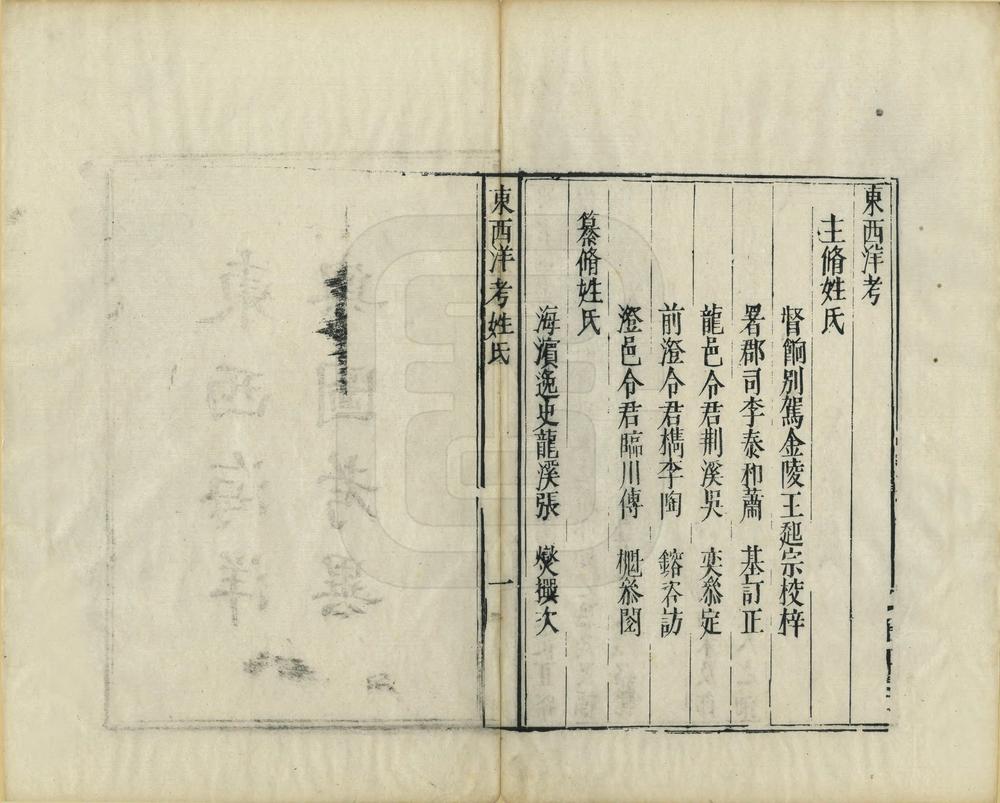 東西洋考
主脩姓氏
督餉別駕金陵王起宗校梓
署郡司李泰和蕭 基訂正
龍邑令君荆溪吳 奕叅定
前澄令君檇李陶 鎔咨訪
澄邑令君臨川傅 櫆叅閱
纂脩姓氏
海濵逸史龍溪張 燮撰次
東西洋考 姓氏 一